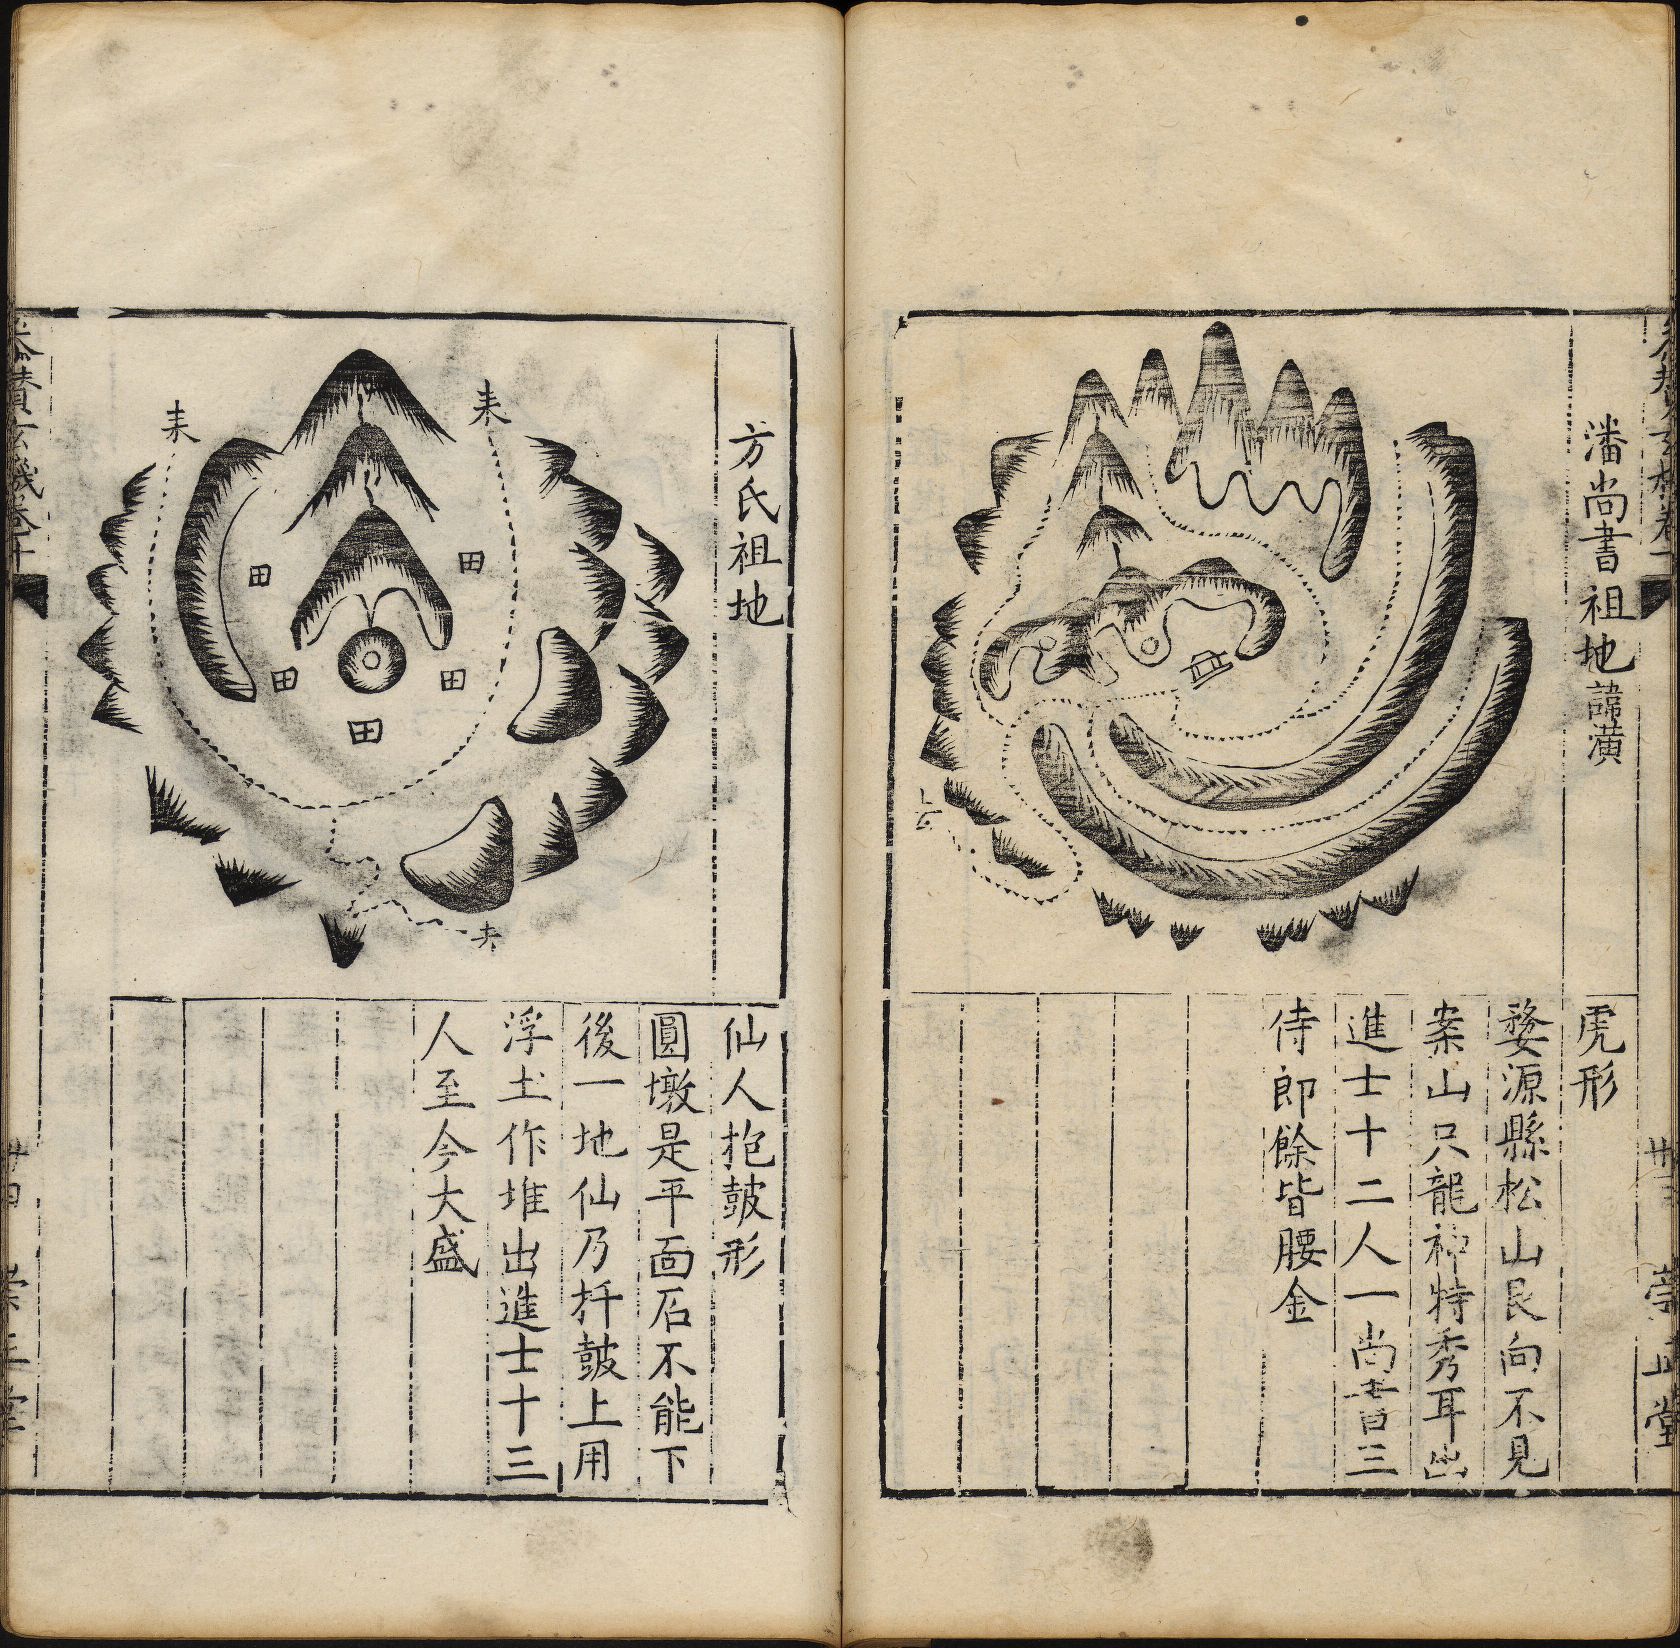 潘尚書祖地諱潢
虎形
婺源縣松山艮向不見
案山只龍神特秀耳出
進士十二人一尚書三
侍郎餘皆腰金
崇正堂
去
方氏祖地
耒
耒
田
田
田
田
田
去
仙人抱鼓形
圓墩是平面石不能下
後一地仙乃扦鼓上用
浮土作堆出進士十三
人至今大盛